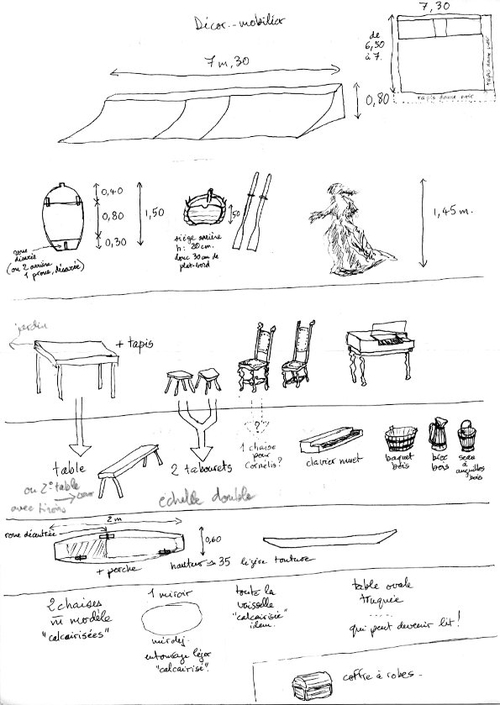 Décor.-mobilier
7,30
de
6,50
à 7.
tapis danse noir
tapis danse noir
7m,30
0,80
0,40
0,80
0,30
1,50
(ou 2 arrière
1 proue, décorée)
50
siège arrière
h: 20 cm.
donc 30 cm de
plat-bord
1,45 m.
jardin
+ tapis
?
table
ou 2e table
avec tiroirs
cour
2 tabourets
échelle double
1 chaise
pour
Cornelis?
clavier muet
baquet
bois
broc
bois
seau
à
anguilles
bois
2m
0,60
+ perche
hauteur → 35 légère tonture
2 chaises
m modèle
"calcairisées"
1 miroir
entourage léger
"calcairisé".
toute la
vaisselle
"calcairisée"
idem.
table ovale
truquée
qui peut devenir lit!
coffre à robes-